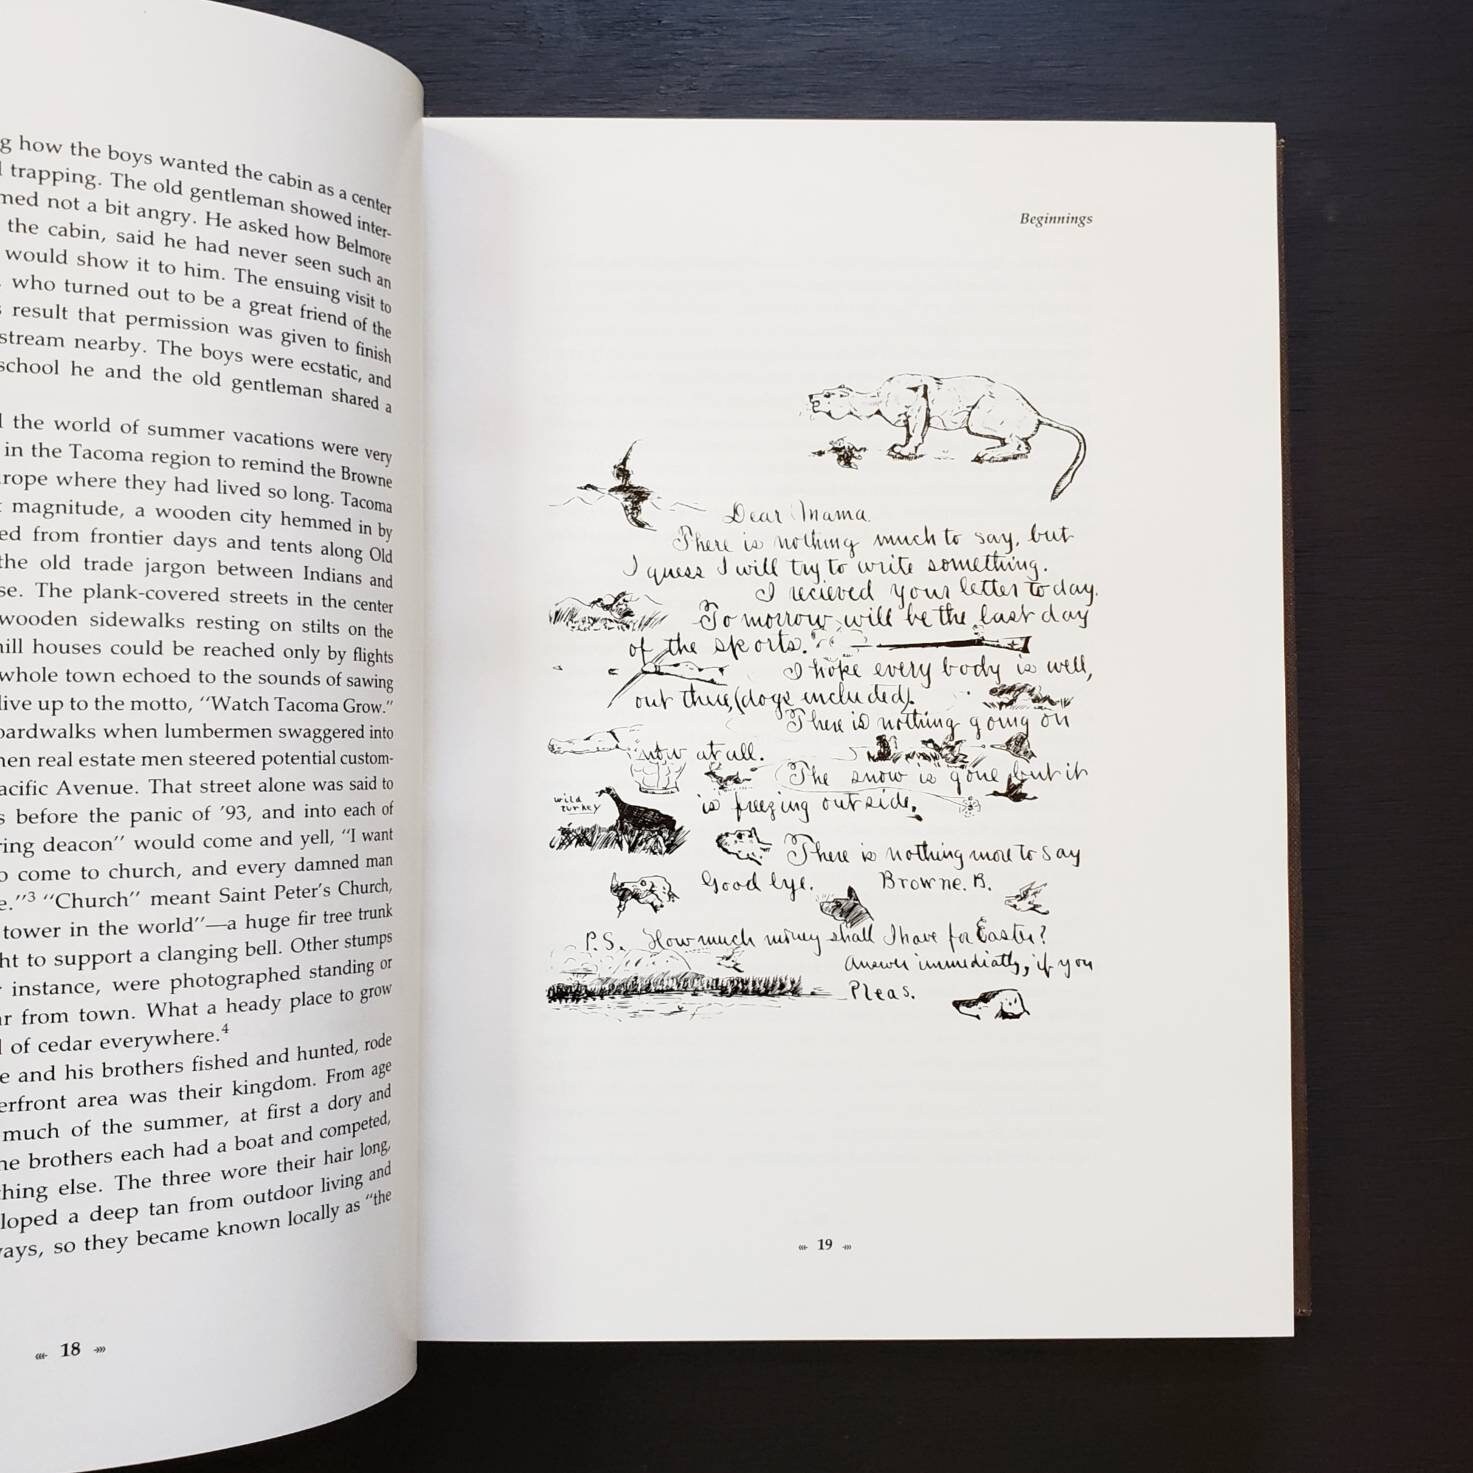 g how the boys wanted the cabin as a center
trapping. The old gentleman showed inter-
med not a bit angry. He asked how Belmore
the cabin, said he had never seen such an
would show it to him. The ensuing visit to
who turned out to be a great friend of the
result that permission was given to finish
stream nearby. The boys were ecstatic, and
school he and the old gentleman shared a
the world of summer vacations were very
in the Tacoma region to remind the Browne
urope where they had lived so long. Tacoma
magnitude, a wooden city hemmed in by
ed from frontier days and tents along Old
the old trade jargon between Indians and
se. The plank-covered streets in the center
wooden sidewalks resting on stilts on the
ill houses could be reached only by flights
whole town echoed to the sounds of sawing
live up to the motto, "Watch Tacoma Grow."
oardwalks when lumbermen swaggered into
hen real estate men steered potential custom-
acific Avenue. That street alone was said to
s before the panic of '93, and into each of
ring deacon" would come and yell, "I want
o come to church, and every damned man
e."3 "Church" meant Saint Peter's Church,
tower in the world"—a huge fir tree trunk
ht to support a clanging bell. Other stumps
r instance, were photographed standing or
ar from town. What a heady place to grow
l of cedar everywhere.4
e and his brothers fished and hunted, rode
erfront area was their kingdom. From age
much of the summer, at first a dory and
he brothers each had a boat and competed,
thing else. The three wore their hair long,
loped a deep tan from outdoor living and
ways, so they became known locally as "the
18
Beginnings
Dear Mama.
There is nothing much to say, but
I guess I will try to write something.
I recieved your letter to day.
To morrow will be the last day
of the sports.
I hope every body is well,
out there, (dogs included).
There is nothing going on
now at all.
The snow is gone but it
wild
turkey
is freezing outside.
There is nothing more to say
Good bye. Browne. B.
P.S. How much money shall I have for Easter?
Answer immediatly, if you
Pleas.
19